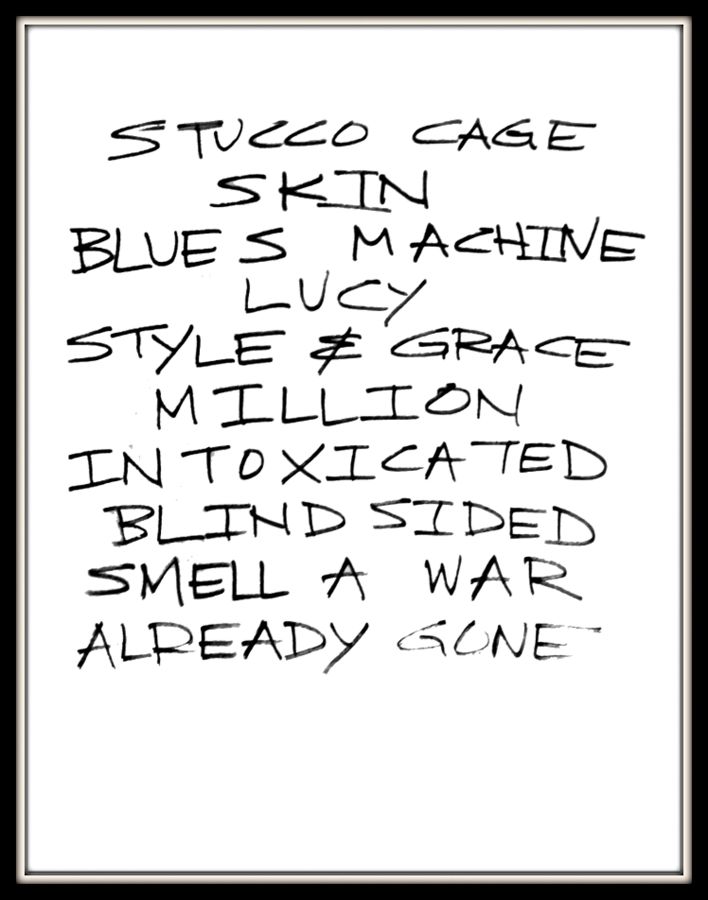 STUCCO CAGE
SKIN
BLUES MACHINE
LUCY
STYLE & GRACE
MILLION
INTOXICATED
BLIND SIDED
SMELL A WAR
ALREADY GONE